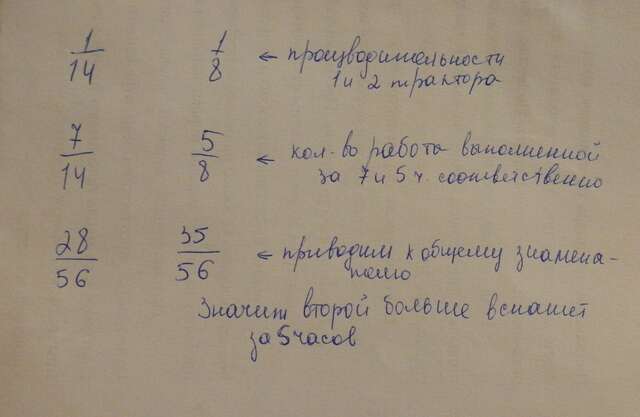 1/14 1/8 ← производительности
1 и 2 трактора
7/14 5/8 ← кол-во работы выполненной
за 7 и 5 ч. соответственно
28/56 35/56 ← приводим к общему знамена-
телю
Значит второй больше вспашет
за 5 часов